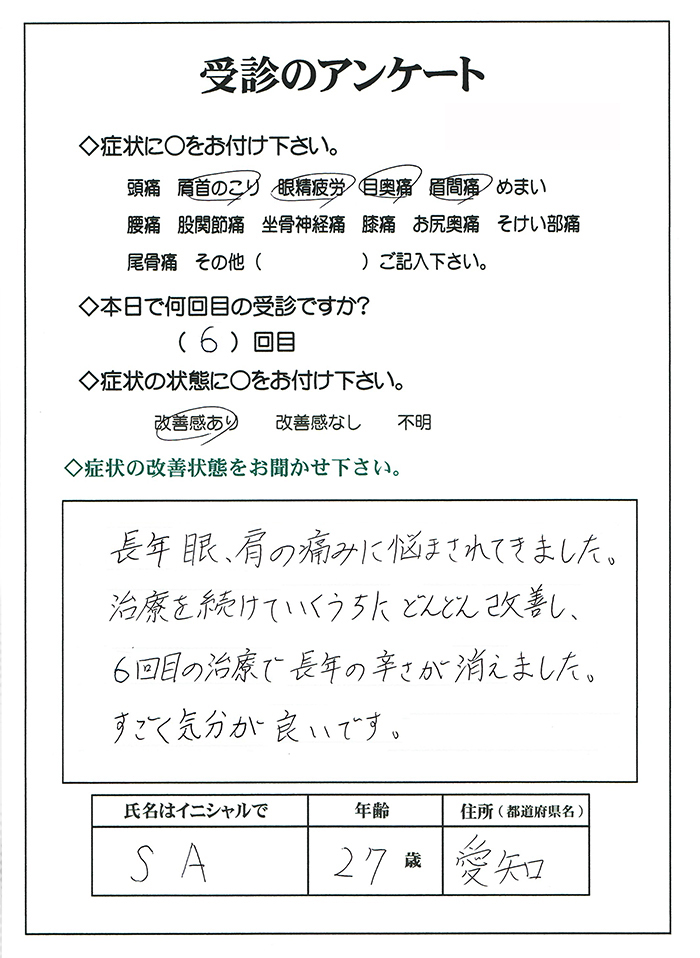 受診のアンケート
◇症状に〇をお付け下さい。
頭痛 肩首のこり 眼精疲労 目奥痛 眉間痛 めまい
腰痛 股関節痛 坐骨神経痛 膝痛 お尻奥痛 そけい部痛
尾骨痛 その他（ ）ご記入下さい。
◇本日で何回目の受診ですか？
（ 6 ）回目
◇症状の状態に〇をお付け下さい。
改善感あり 改善感なし 不明
◇症状の改善状態をお聞かせ下さい。
長年眼、肩の痛みに悩まされてきました。
治療を続けていくうちにどんどん改善し、
6回目の治療で長年の辛さが消えました。
すごく気分が良いです。
氏名はイニシャルで 年齢 住所（都道府県名）
S A 27歳 愛知